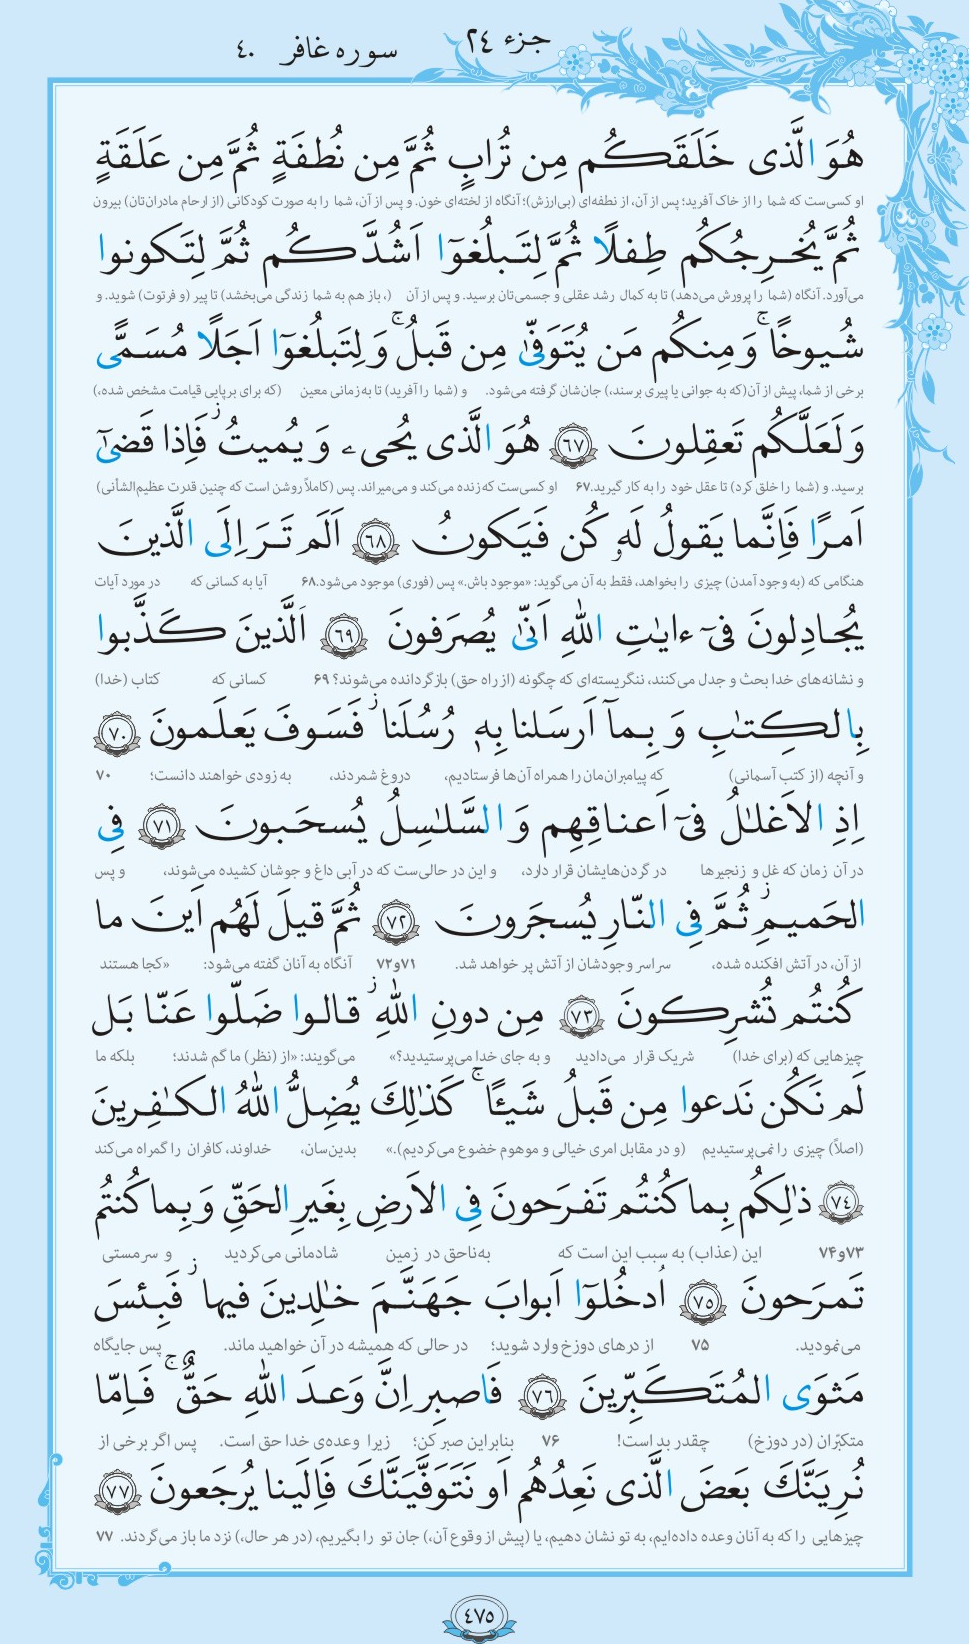 جزء ٢٤
سوره غافر ٤٠
هُوَ الَّذی خَلَقَکُم مِن تُرابٍ ثُمَّ مِن نُطفَةٍ ثُمَّ مِن عَلَقَةٍ
او کسی‌ست که شما را از خاک آفرید؛ پس از آن، از نطفه‌ای (بی‌ارزش)؛ آنگاه از لخته‌ای خون. و پس از آن، شما را به صورت کودکانی (از ارحام مادران‌تان) بیرون
ثُمَّ یُخرِجُکُم طِفلًا ثُمَّ لِتَبلُغوٓا اَشُدَّکُم ثُمَّ لِتَکونوا
می‌آورد. آنگاه (شما را پرورش می‌دهد) تا به کمال رشد عقلی و جسمی‌تان برسید. و پس از آن (، باز هم به شما زندگی می‌بخشد) تا پیر (و فرتوت) شوید. و
شُیوخًا ۚ وَ مِنکُم مَن یُتَوَفّیٰ مِن قَبلُ ۚ وَ لِتَبلُغوٓا اَجَلًا مُسَمًّی
برخی از شما، پیش از آن(که به جوانی یا پیری برسند،) جان‌شان گرفته می‌شود. و (شما را آفرید) تا به زمانی معین (که برای برپایی قیامت مشخص شده،)
وَ لَعَلَّکُم تَعقِلونَ ﴿٦٧﴾ هُوَ الَّذی یُحیی‌ء وَ یُمیتُ ز فَاِذا قَضیٰٓ
برسید. و (شما را خلق کرد) تا عقل خود را به کار گیرید.۶۷ او کسی‌ست که زنده می‌کند و می‌میراند. پس (کاملاً روشن است که چنین قدرت عظیم‌الشأنی)
اَمرًا فَاِنَّما یَقولُ لَهٗ کُن فَیَکونُ ﴿٦٨﴾ اَلَم تَرَ اِلَی الَّذینَ
هنگامی که (به وجود آمدن) چیزی را بخواهد، فقط به آن می‌گوید: «موجود باش.» پس (فوری) موجود می‌شود.۶۸ آیا به کسانی که در مورد آیات
یُجادِلونَ فیٓ ءایٰتِ اللهِ اَنّیٰ یُصرَفونَ ﴿٦٩﴾ اَلَّذینَ کَذَّبوا
و نشانه‌های خدا بحث و جدل می‌کنند، ننگریسته‌ای که چگونه (از راه حق) بازگردانده می‌شوند؟ ۶۹ کسانی که کتاب (خدا)
بِالکِتٰبِ وَ بِمآ اَرسَلنا بِهٖ رُسُلَنا ز فَسَوفَ یَعلَمونَ ﴿٧٠﴾
و آنچه (از کتب آسمانی) که پیامبران‌مان را همراه آن‌ها فرستادیم، دروغ شمردند، به زودی خواهند دانست؛ ۷۰
اِذِ الاَغلٰلُ فیٓ اَعناقِهِم وَ السَّلٰسِلُ یُسحَبونَ ﴿٧١﴾ فِی
در آن زمان که غل و زنجیرها در گردن‌هایشان قرار دارد، و این در حالی‌ست که در آبی داغ و جوشان کشیده می‌شوند، و پس
الحَمیمِ ز ثُمَّ فِی النّارِ یُسجَرونَ ﴿٧٢﴾ ثُمَّ قیلَ لَهُم اَینَ ما
از آن، در آتش افکنده شده، سراسر وجودشان از آتش پر خواهد شد. ۷۱و۷۲ آنگاه به آنان گفته می‌شود: «کجا هستند
کُنتُم تُشرِکونَ ﴿٧٣﴾ مِن دونِ اللهِ ز قالوا ضَلّوا عَنّا بَل
چیزهایی که (برای خدا) شریک قرار می‌دادید و به جای خدا می‌پرستیدید؟» می‌گویند: «از (نظر) ما گم شدند؛ بلکه ما
لَم نَکُن نَدعوا مِن قَبلُ شَیـًٔا ۚ کَذٰلِكَ یُضِلُّ اللهُ الکٰفِرینَ
(اصلاً) چیزی را نمی‌پرستیدیم (و در مقابل امری خیالی و موهوم خضوع می‌کردیم).» بدین‌سان، خداوند، کافران را گمراه می‌کند
﴿٧٤﴾ ذٰلِکُم بِما کُنتُم تَفرَحونَ فِی الاَرضِ بِغَیرِ الحَقِّ وَ بِما کُنتُم
۷۳و۷۴ این (عذاب) به سبب این است که به‌ناحق در زمین شادمانی می‌کردید و سرمستی
تَمرَحونَ ﴿٧٥﴾ اُدخُلوٓا اَبوابَ جَهَنَّمَ خٰلِدینَ فیها ز فَبِئسَ
می‌نمودید. ۷۵ از درهای دوزخ وارد شوید؛ در حالی که همیشه در آن خواهید ماند. پس جایگاه
مَثوَی المُتَکَبِّرینَ ﴿٧٦﴾ فَاصبِر اِنَّ وَعدَ اللهِ حَقٌّ ۚ فَاِمّا
متکبّران (در دوزخ) چقدر بد است! ۷۶ بنابراین صبر کن؛ زیرا وعده‌ی خدا حق است. پس اگر برخی از
نُرِیَنَّكَ بَعضَ الَّذی نَعِدُهُم اَو نَتَوَفَّیَنَّكَ فَاِلَینا یُرجَعونَ ﴿٧٧﴾
چیزهایی را که به آنان وعده داده‌ایم، به تو نشان دهیم، یا (پیش از وقوع آن،) جان تو را بگیریم، (در هر حال،) نزد ما باز می‌گردند. ۷۷
٤٧٥